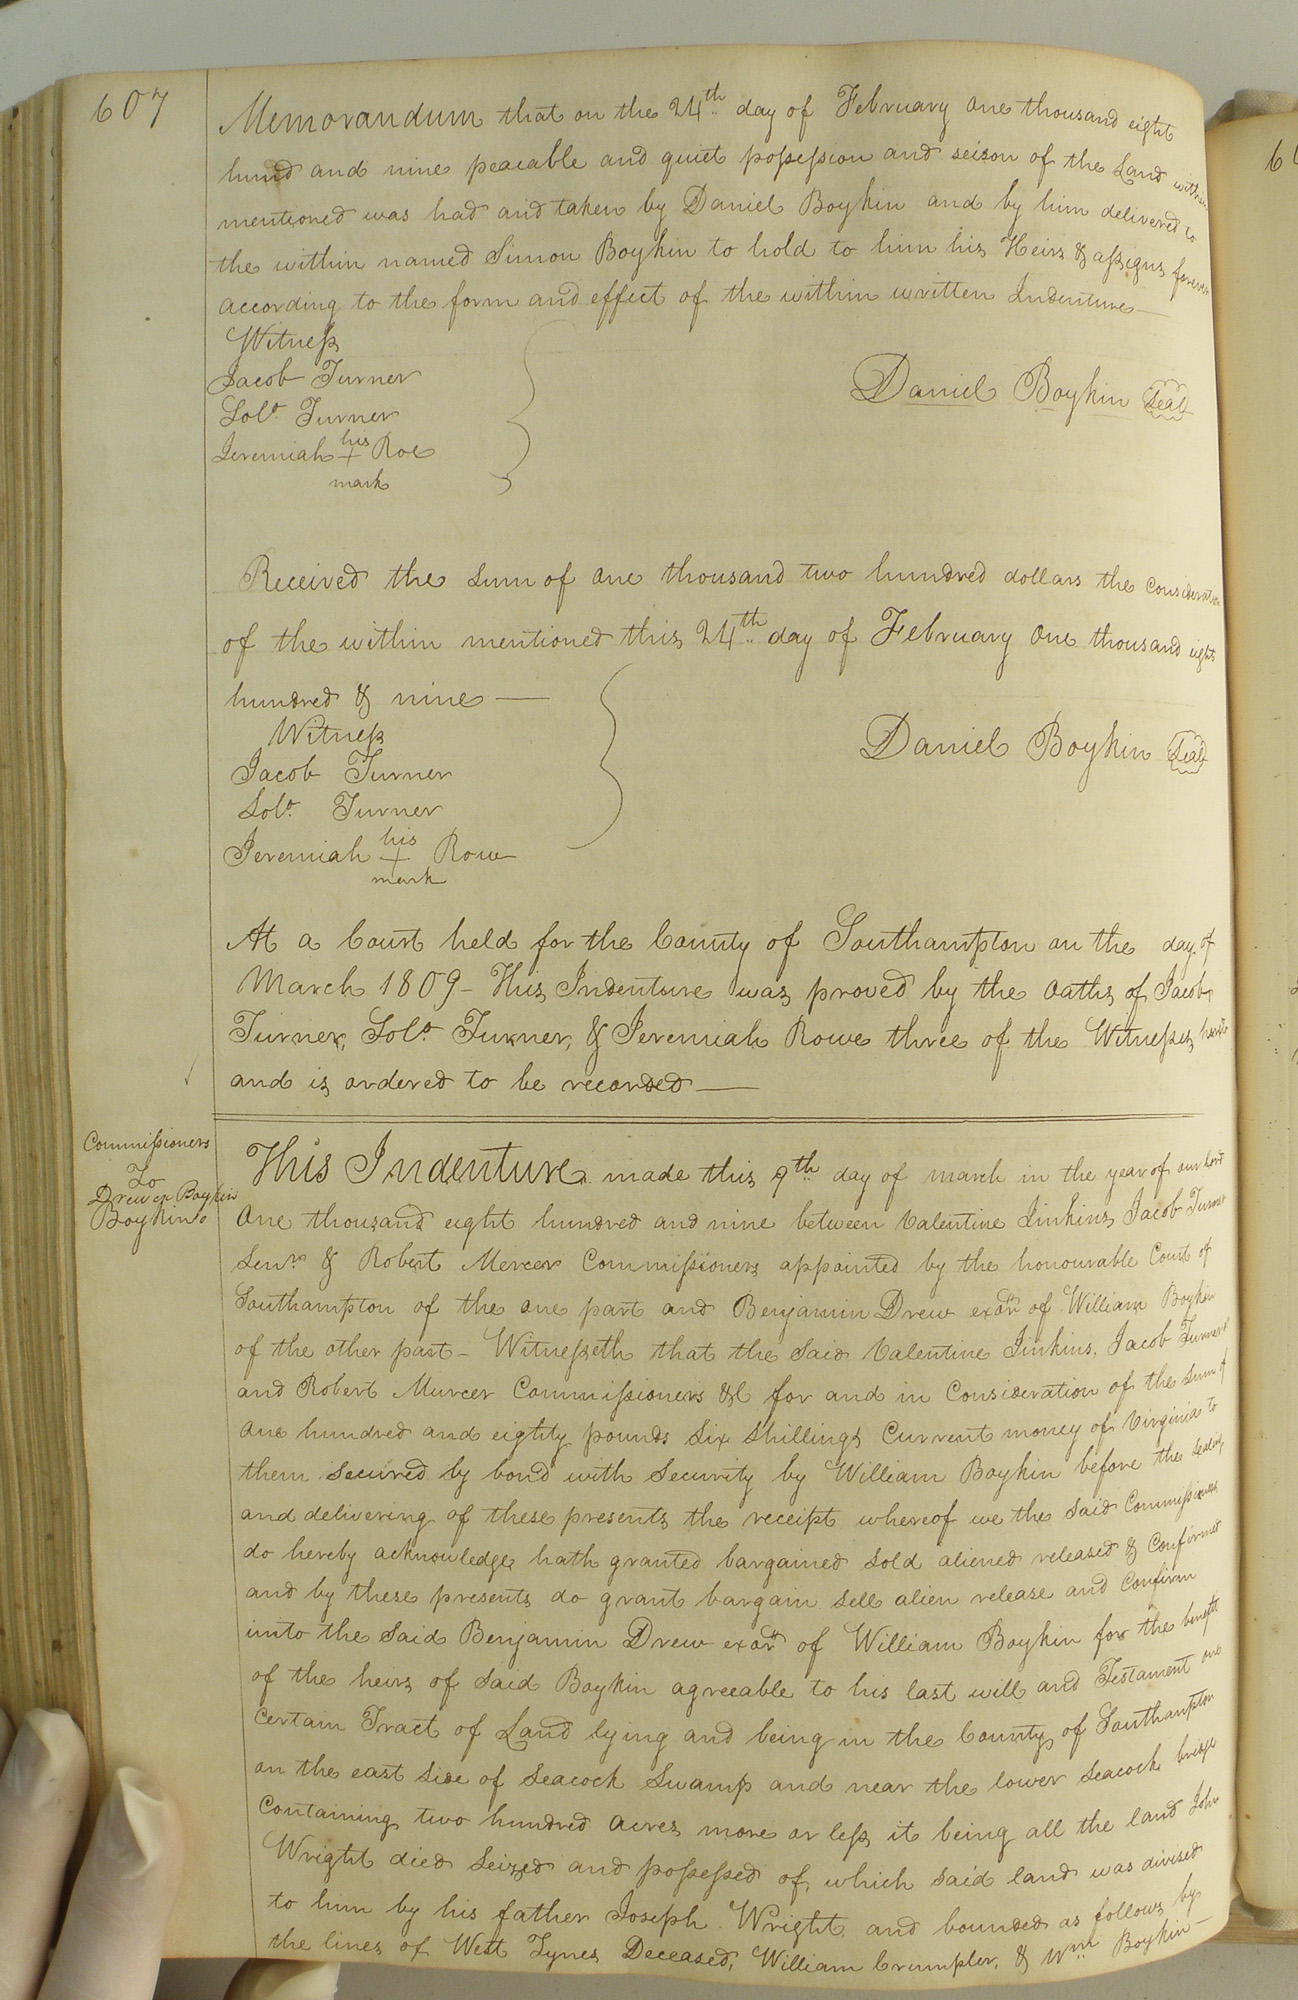 607
Memorandum that on the 24th day of February one thousand eight
hund and nine peacable and quiet possession and seizon of the Land within
mentioned was had and taken by Daniel Boykin and by him delivered to
the within named Simon Boykin to hold to him his Heirs & assigns forever
according to the form and effect of the within written Indenture—
Witness
Jacob Turner
Daniel Boykin Seal
Solo. Turner
Jeremiah his + mark Roe
Received the sum of one thousand two hundred dollars the consideration
of the within mentioned this 24th day of February one thousand eight
hundred & nine —
Witness
Daniel Boykin Seal
Jacob Turner
Solo. Turner
Jeremiah his + mark Rowe
At a Court held for the County of Southampton on the day of
March 1809 – This Indenture was proved by the oaths of Jacob
Turner, Solo. Turner, & Jeremiah Rowe three of the Witnesses hereto
and is ordered to be recorded —
Commissioners
To
Drew ex Boykin
Boykin
This Indenture made this 9th day of march in the year of our Lord
One thousand eight hundred and nine between Valentine Jinkins, Jacob Turner
Senr. & Robert Mercer Commissioners appointed by the honourable Court of
Southampton of the one part and Benjamin Drew exor. of William Boykin
of the other part – Witnesseth that the said Valentine Jinkins, Jacob Turner
and Robert Murcer Commissioners &C for and in Consideration of the sum of
one hundred and eighty pounds six shillings Current money of Virginia to
them secured by bond with security by William Boykin before the sealing
and delivering of these presents the receipt whereof we the said Commissioners
do hereby acknowledge hath granted bargained sold aliened released & Confirmed
and by these presents do grant bargain sell alien release and Confirm
unto the said Benjamin Drew exor. of William Boykin for the benefit
of the heirs of said Boykin agreeable to his last will and Testament one
certain Tract of Land lying and being in the County of Southampton
on the east side of Seacock Swamp and near the lower seacock bridge
Containing two hundred acres more or less it being all the land John
Wright died seized and possessed of, which said land was divised
to him by his father Joseph Wright and bounded as follows, by
the lines of West Tynes Deceased, William Crumpler, & Wm. Boykin –